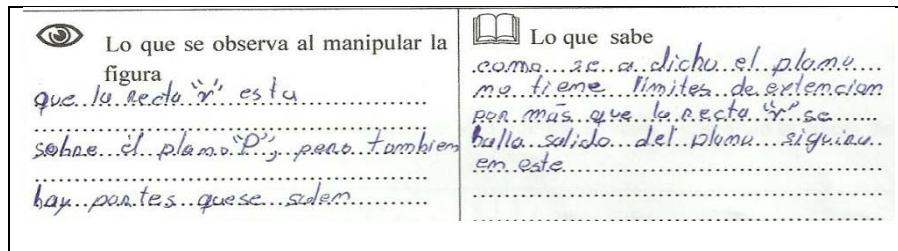 Lo que se observa al manipular la
figura
que la recta "r" esta
sobre el plano "P", pero tambien
hay partes que se salen
Lo que sabe
como se a dicho el plano
no tiene límites de extencion
por más que la recta "r" se
halla salido del plano siguira
en este